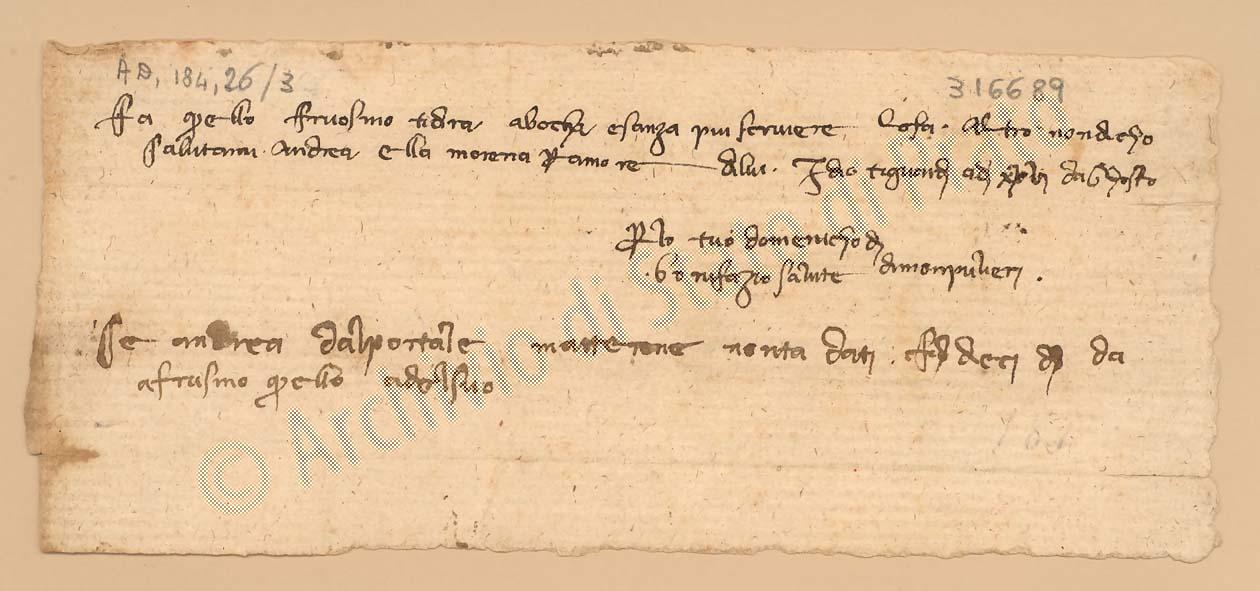 AD, 184, 26/3
316689
Fa quello fruosino tidira abocha esanza piu scrivere chosa. Altro nondicho
Salutami Andrea e lla morena p amore dilui. Idio tiguardi adi d aghosto
P lo tuo domenicho di
bonifazio salute dimonpulieri.
Se andrea dalportale nonta dati deci di da
afrusino quello
© Archivio di Stato di Prato